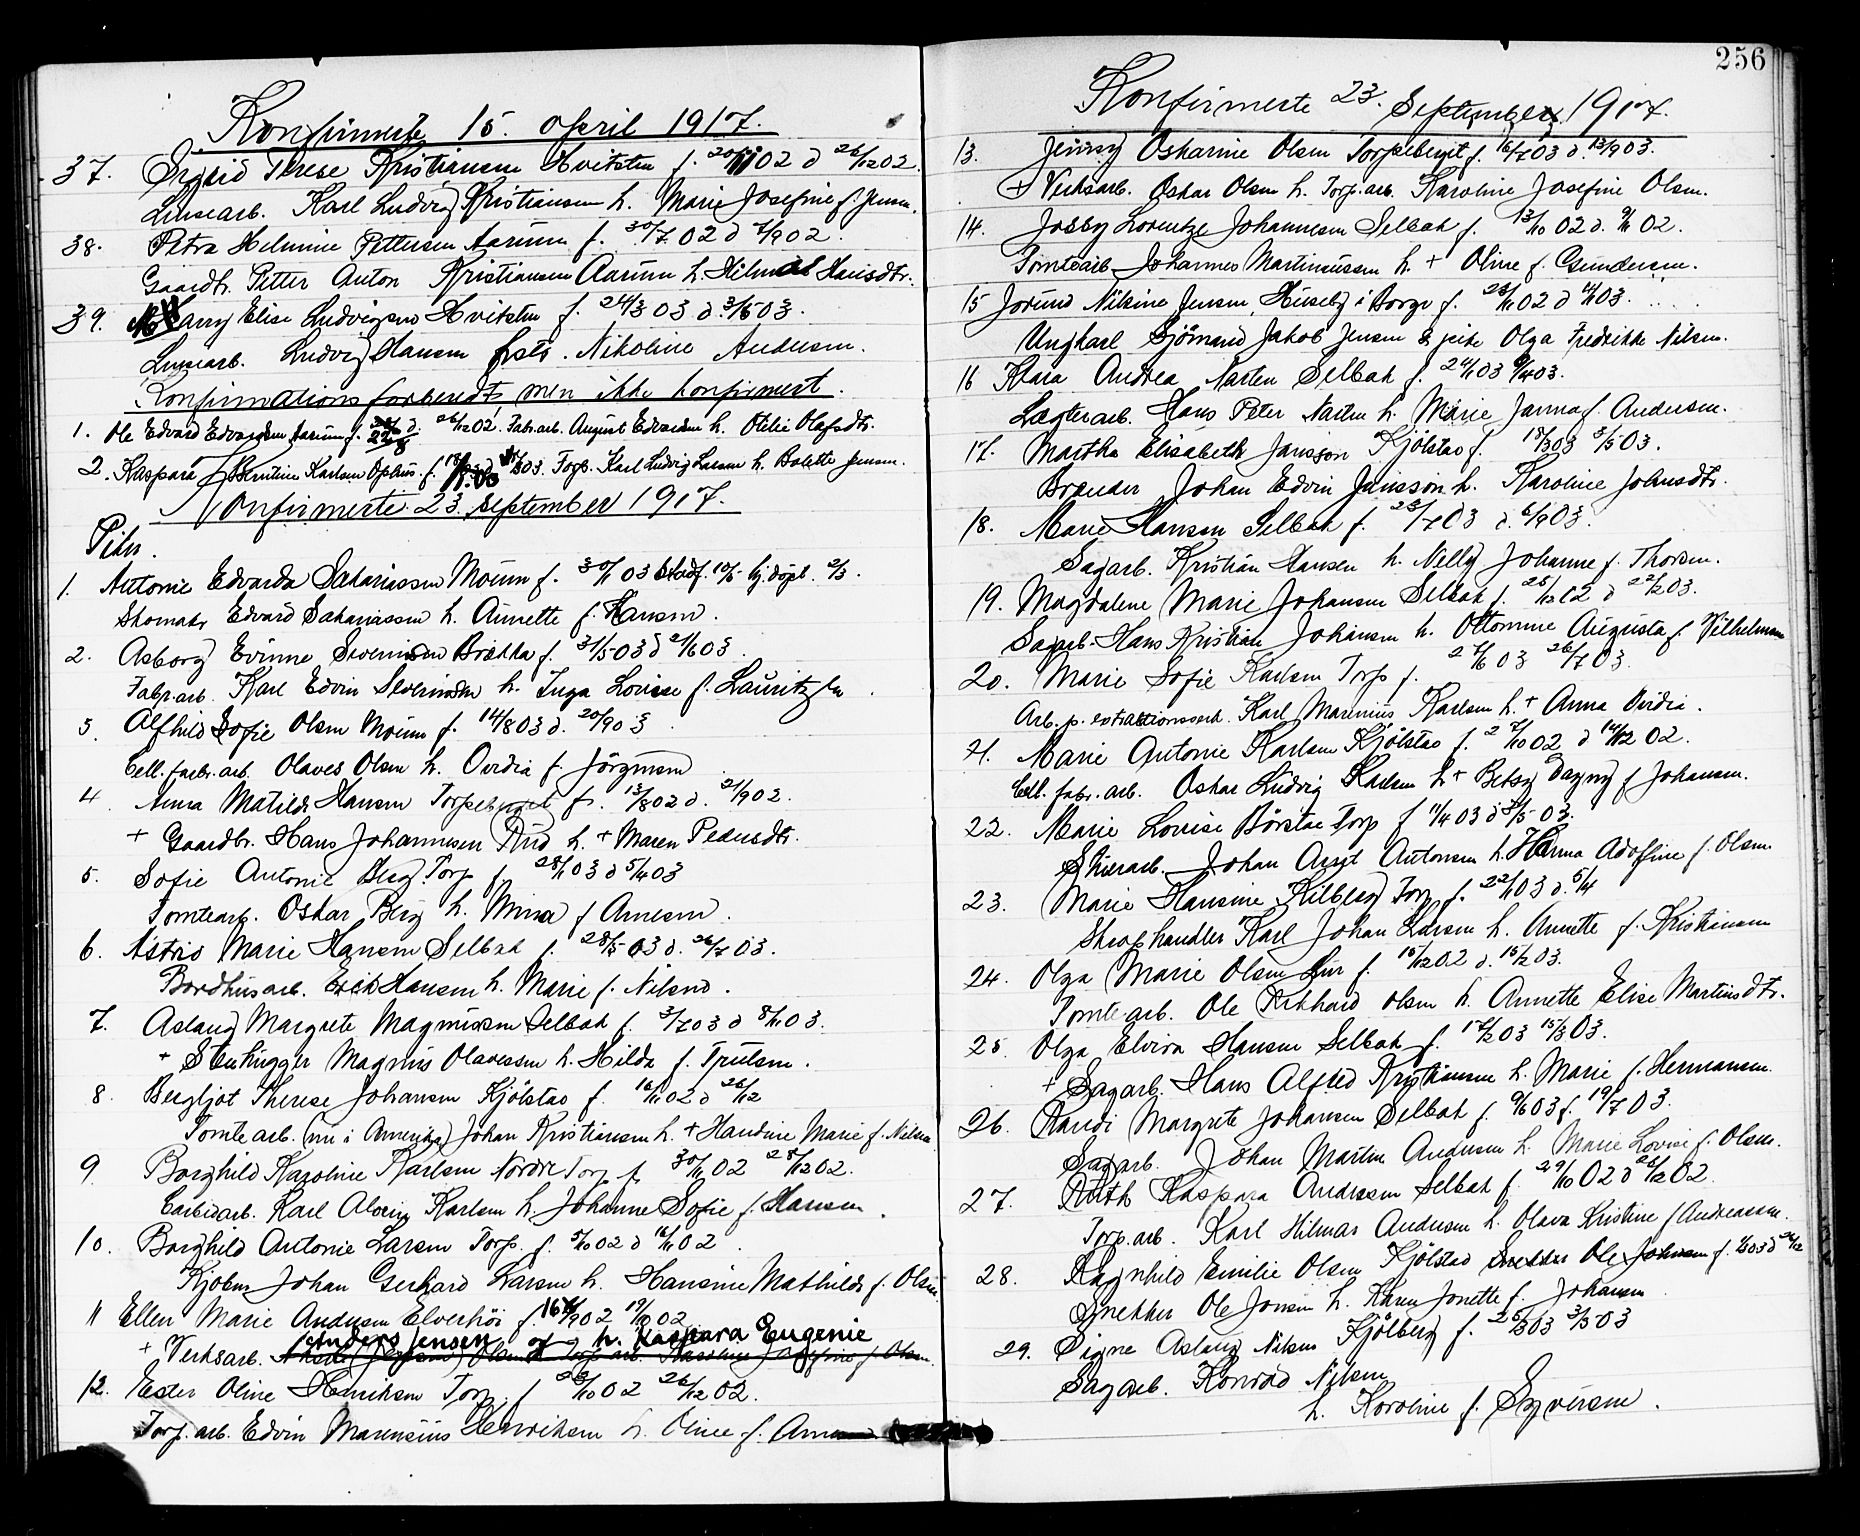 Konfirmerte 15. april 1917.
37. Sigrid Therese Kristiansen Hvitsten f. 20/11 02 d 26/12 02
Linsearb. Karl Ludvig Kristiansen h. Marie Josefine f. Jensen.
38. Petra Helmine Pettersen Aarum f. 30/7 02 d 7/9 02.
Gaardbr. Petter Anton Kristiansen Aarum h. Hilma Hansdtr.
39. Fanny Elise Ludvigsen Hvitsten f. 24/3 03 d. 3/5 03.
Linsearb. Ludvig Hansen Nikoline Andersen.
Konfirmationsforberedt, men ikke konfirmert.
1. Ole Edvard Edvardsen Aarum f. d. 26/12 02. Fabr.arb. August Edvardsen h. Otilie Olafsdtr.
2. Kaspara Karlsen Ophus f. 03. Torp. Karl Ludvig Larsen h. Bolette Jensen.
Konfirmerte 23. september 1917.
Piker.
1. Antonie Edvarda Sakariassen Moum f. 30/1 03 10/5 hj.døpt. 2/3.
Skomaker Edvard Sakariassen h. Annette f. Hansen.
2. Asborg Evinne Brekka f. 31/5 03 d 21/6 03.
Fabr.arb. Karl Edvin h. Inga Lovise f. Lauritzen.
3. Alfhild Sofie Olsen Moum f. 14/8 03 d. 20/9 03
Cell.fabr.arb. Olaves Olsen h. Ovidia f. Jörgensen
4. Anna Matilde Hansen Torpeberget f. 13/8 02 d. 21/9 02.
+ Gaardbr. Hans Johannesen Rud h. + Maren Pedersdtr.
5. Sofie Antonie Berg Torp f. 28/1 03 d 5/4 03
Tomtearb. Oskar Berg h. Mina f Arnesen.
6. Astrid Marie Hansen Selbak f. 28/5 03 d. 26/7 03.
Bordhusarb. Erik Hansen h. Marie f. Nilsen.
7. Aslaug Margrete Magnussen Selbak f. 3/7 03 d 8/11 03.
+ Stenhugger Magnus Olavessen h. Hilda f. Trulsen.
8. Bergljot Therese Johansen Kjölstad f. 16/11 02 d 26/12
Tomtearb. (nu i Amerika) Johan Kristiansen h. + Handine Marie f. Nilsen
9. Borghild Karoline Karlsen Nordre Torp f. 30/11 02 28/12 02.
Carbidarb. Karl Karlsen h. Johanne Sofie f. Hansen.
10. Borghild Antonie Larsen Torp. f. 5/10 02 d 16/11 02.
Kjobm Johan Gerhard Larsen h. Hansine Mathilde f. Olsen.
11 Ellen Marie Andersen Elverhöi f. 16/9 02 19/10 02
Anders Jensen og h. Kaspara Eugenie
+ Verksarb.
12. Ester Oline Henriksen Torp. f 26/10 02 26/12 02.
Torp.arb. Edvin Marensius Henriksen h. Oline f. Arnesen
256
Konfirmerte 23. September 1917.
13. Jenny Oskarine Olsen Torpeberget f. 16/7 03 d. 13/9 03.
+ Verksarb. Oskar Olsen h. Torp.arb. Karoline Josefine Olsen.
14. Josby Lorentze Johannesen Selbak f. 13/10 02 d. 9/11 02.
Tomtearb Johannes Martinussen h. + Oline f. Gundersen.
15 Jorund Nilsine Jensen, Huseby i Borge f. 28/11 02 d 03.
Ungkarl Sjömand Jakob Jensen & pike Olga Fredrikke Nilsen.
16 Klara Andrea Narten Selbak f. 24/1 03 9/4 03.
Lægterarb. Hans Peter Narten h. Marie Janna f. Andersen.
17. Martha Elisabeth Jansson Kjölstad f. 18/3 03 3/5 03.
Brænder Johan Edvin Jansson h. Karoline Johnsdtr.
18. Marie Hansen Selbak f. 28/7 03 d. 6/9 03.
Sagarb. Kristian Hansen h. Nelly Johanne f. Thorsen.
19. Magdalene Marie Johansen Selbak f. 25/12 02 d 22/2 03.
Sagarb. Hans Kristian Johansen h. Ottomine Augusta f. Vilhelmsen
20. Marie Sofie Karlsen Torp f. 27/6 03 26/7 03.
Arb. p. extraktionsverk. Karl Marenius Karlsen h. + Anna Ovidia.
21. Marie Antonie Karlsen Kjölstad f. 27/10 02 d 14/12 02.
Cell. fabr. arb. Oskar Ludvig Karlsen h + Betsy Dagny f Johansen.
22. Marie Lovise Börstad Torp f 11/4 03 d 31/5 03.
Johan Antonsen h. Hanna Adolfine f. Olsen
23. Marie Hansine Kilberg Torp f. 22/1 03 d. 5/4
Skraphandler Karl Johan Larsen h. Annette f. Kristiansen
24. Olga Marie Olsen Lur f. 15/12 02 d. 15/2 03.
Tomtearb. Ole Rikhard Olsen h. Annette Elise Martinsdtr.
25. Olga Elvira Hansen Selbak f. 17/2 03 15/3 03.
+ Sagarb. Hans Alfred Kristiansen h. Marie f. Hermansen
26. Randi Margrete Johansen Selbak f. 9/6 03 f. 19/7 03.
Sagarb. Johan Martin Andersen h. Marie Lovise f. Olsen.
27. Ruth Kaspara Andersen Selbak f. 29/10 02 d 26/12 02.
Torp.arb. Karl Hilmar Andersen h. Olava Kristine f Andreassen.
28. Ragnhild Emilie Olsen Kjölstad Snekker Ole Johnsen f. 03 d 26/12
Snekker Ole Jonsen h. Karen Jonette f. Johansen
29. Signe Aslaug Nilsen Kjölberg f. 25/3 03 3/5 03
Sagarb. Konrad Nilsen
h. Karoline f. Syversen.